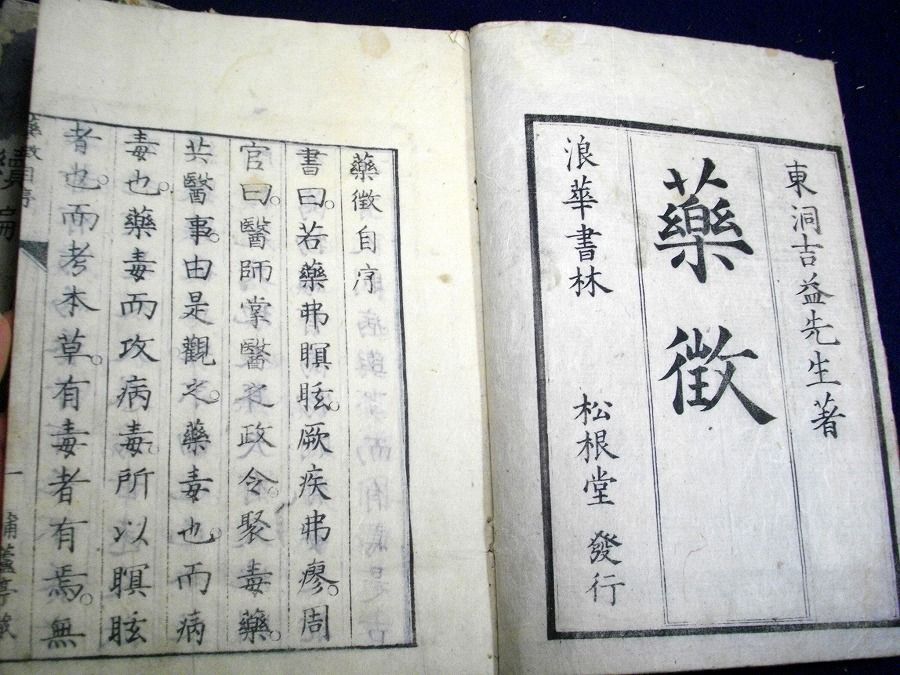 東洞吉益先生著
藥徴
浪華書林 松根堂 發行
藥徴自序
書曰。若藥弗瞑眩。厥疾弗瘳。周
官曰。醫師掌醫之政令。聚毒藥。
共醫事。由是觀之。藥毒也。而病
毒也。藥毒而攻病毒。所以瞑眩
者也。而考本草。有毒者有焉。無
藥徴自序
一